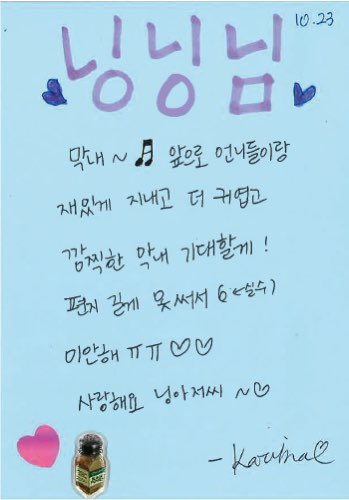 10.23
닝닝님
막내 ~ 🎵 앞으로 언니들이랑
재밌게 지내고 더 귀엽고
깜찍한 막내 기대할게!
편지 길게 못써서 6 (←실수)
미안해 ㅠㅠ ♡♡
사랑해요 닝아저씨 ~♡
- Karina♡